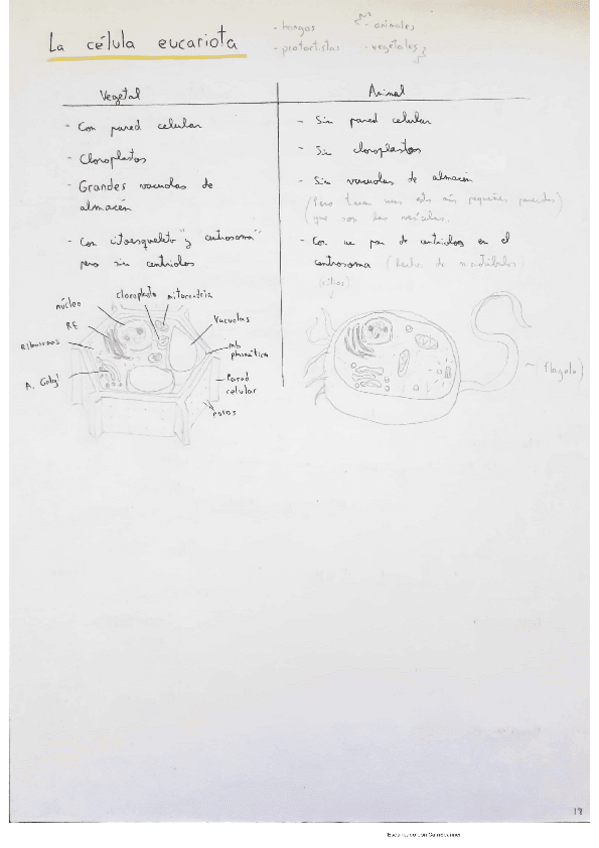 La célula eucariota
- hongos - animales
- protoctistas - vegetales
Vegetal
- Con pared celular
- Cloroplastos
- Grandes vacuolas de
almacén
- Con citoesqueleto "y centrosoma"
pero sin centriolos
Animal
- Sin pared celular
- Sin cloroplastos
- Sin vacuolas de almacén
(Pero tienen unas más pequeñas
que son las vesículas.
- Con un par de centriolos en el
centrosoma (hecho de microtúbulos)
(cilios)
núcleo
cloroplasto
mitocondria
RE
Vacuolas
Ribosomas
mb
plasmática
A. Golgi
Pared
celular
poros
flagelo)
19
Escaneado con CamScanner